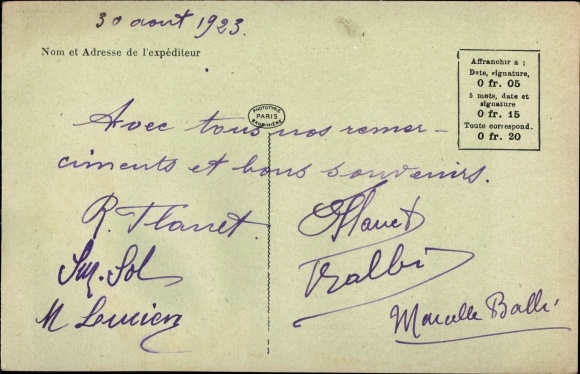 30 août 1923.
Nom et Adresse de l'expéditeur
Affranchir à :
Date, signature,
0 fr. 05
5 mots, date et
signature
0 fr. 15
Toute correspond.
0 fr. 20
PHOTOTYPIE
PARIS
Avec tous nos remer-
ciments et bons souvenirs.
R. Planet.
Planet
Suz. Sol
Balbi
M Lucien
Marcelle Balbi